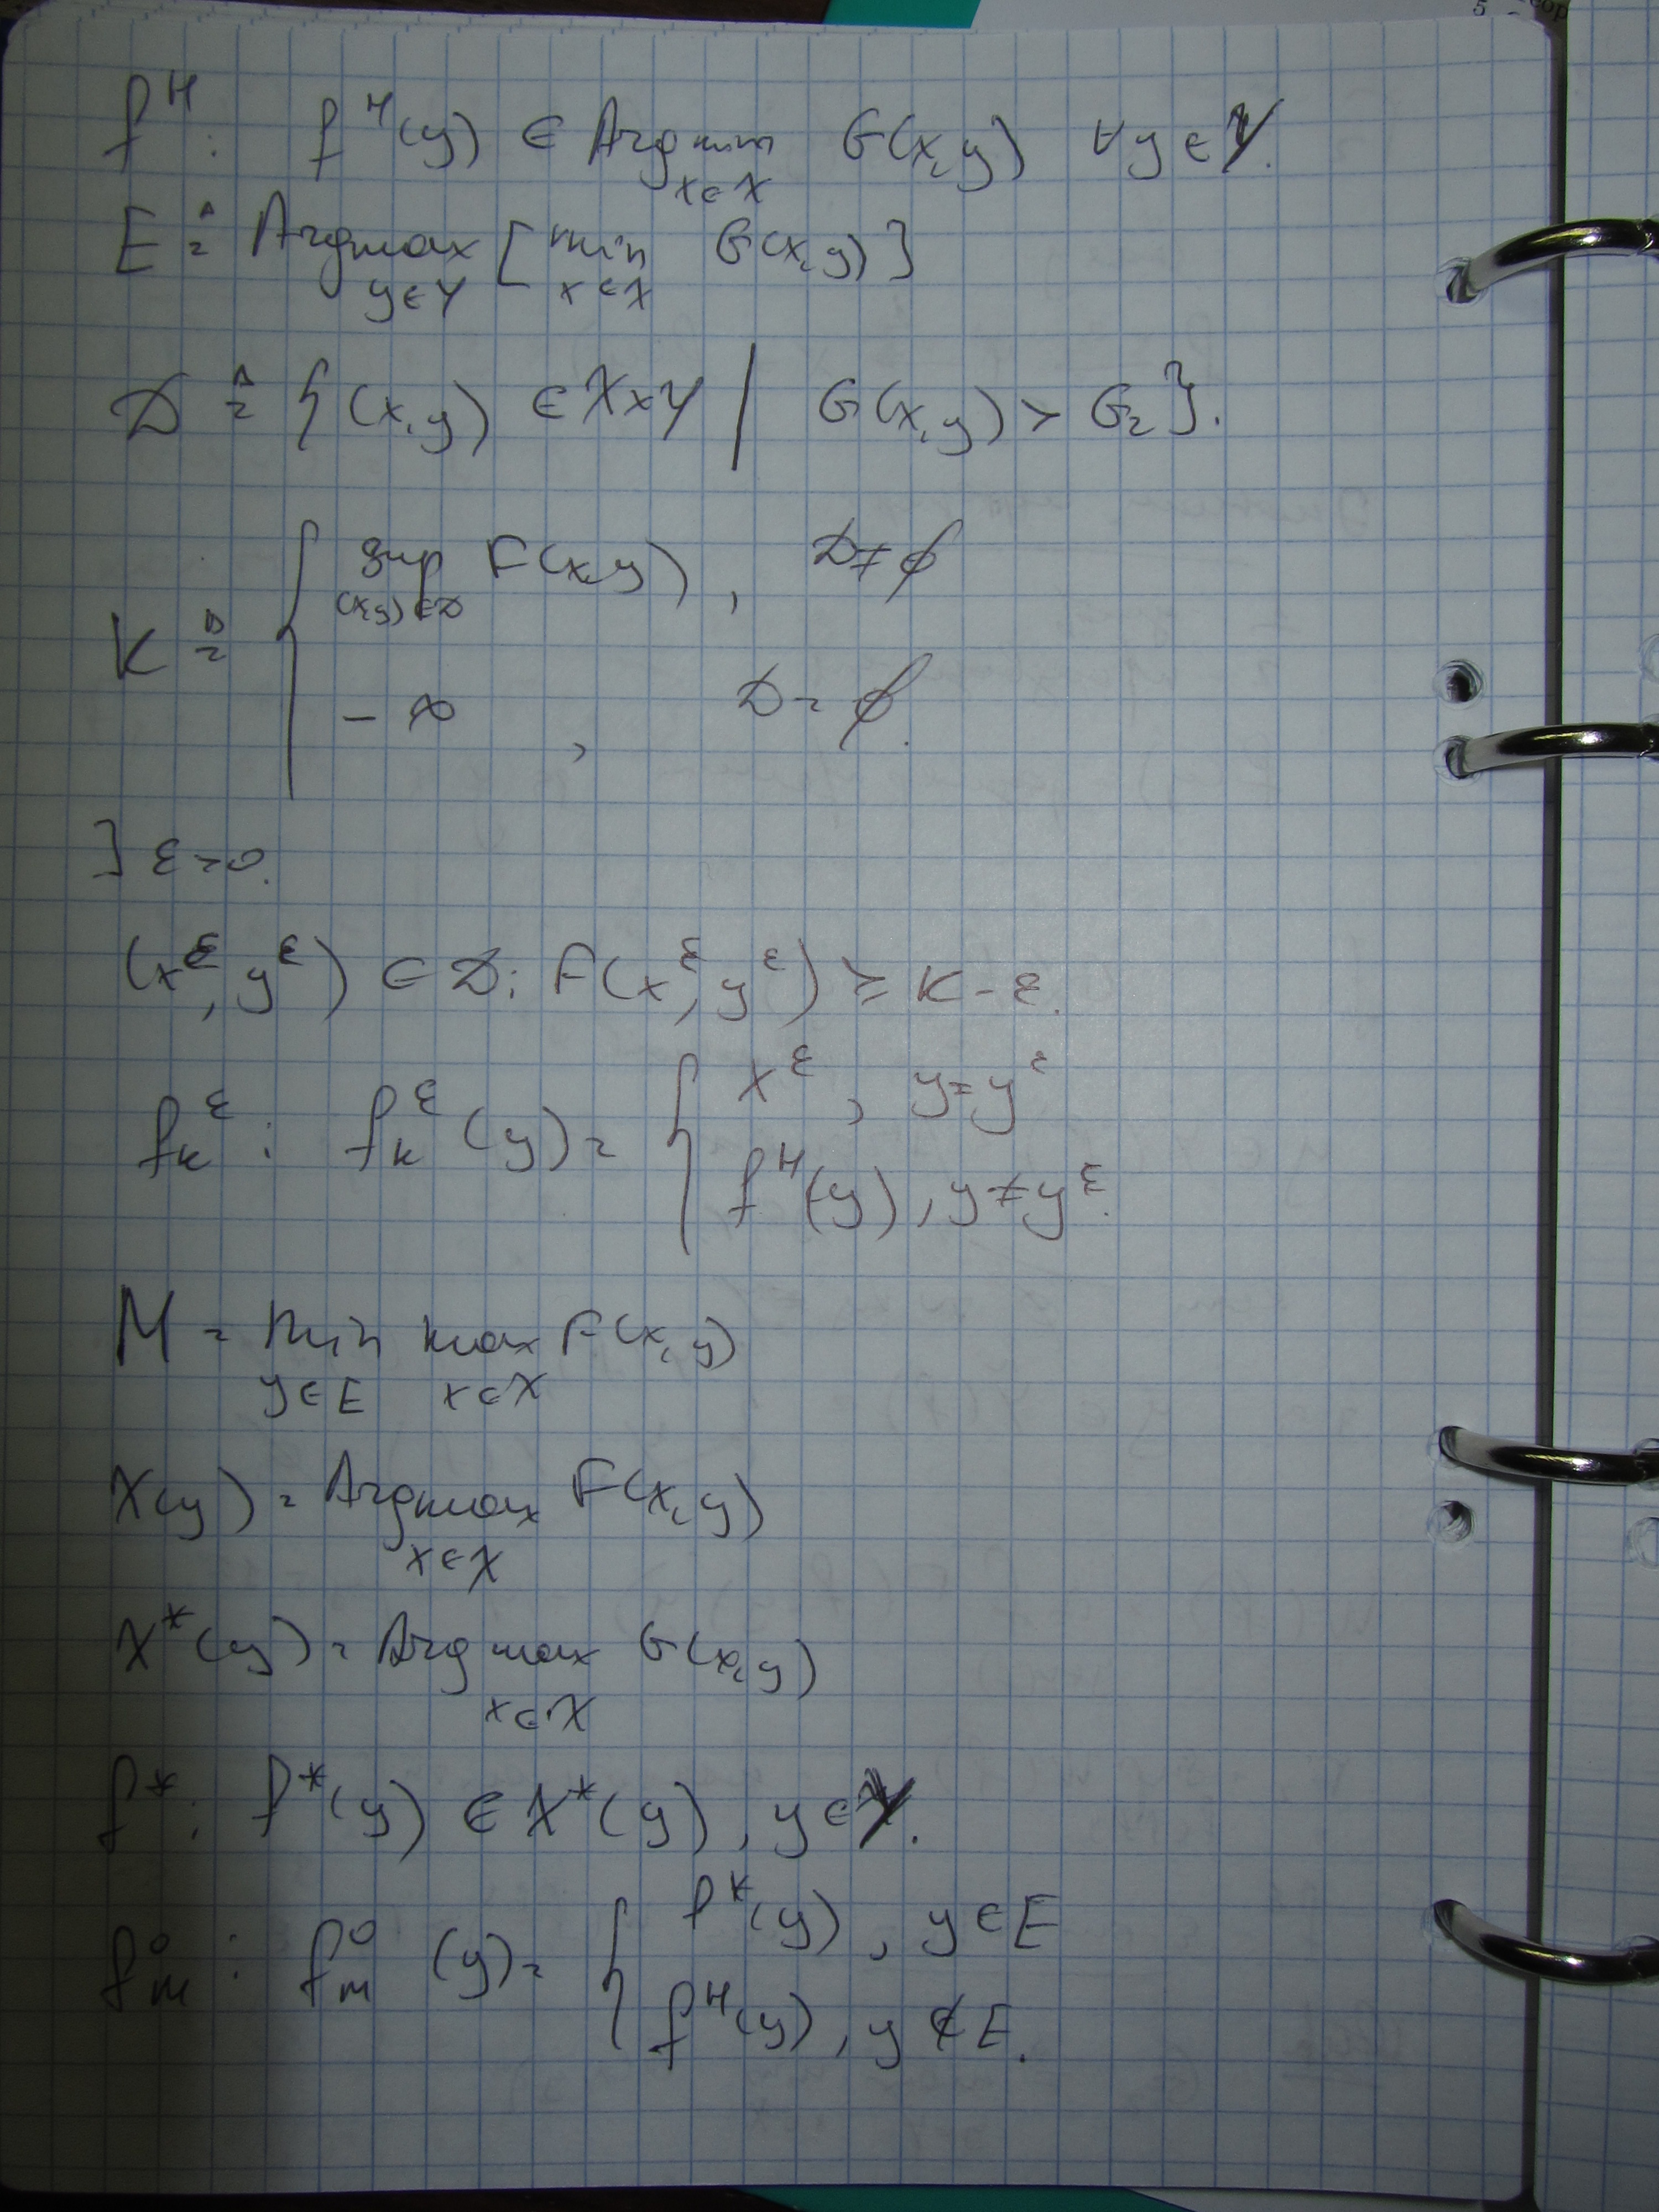 f^H : f^H(y) ∈ Arg min_{x∈X} G(x,y) ∀y∈Y.
E ≜ Argmax_{y∈Y} [ min_{x∈X} G(x,y) ]
D ≜ { (x,y) ∈ X×Y | G(x,y) > G_2 }.
K ≜ { sup_{(x,y)∈D} F(x,y), D≠∅
-∞, D=∅.
] ε>0.
(x^ε, y^ε) ∈ D: F(x^ε, y^ε) ≥ K-ε.
f_k^ε : f_k^ε(y) = { x^ε, y=y^ε
f^H(y), y≠y^ε.
M = min_{y∈E} max_{x∈X} F(x,y)
X(y) = Argmax_{x∈X} F(x,y)
X*(y) = Arg max_{x∈X} G(x,y)
f* : f*(y) ∈ X*(y), y∈Y.
f_m^0 : f_m^0(y) = { f*(y), y∈E
f^H(y), y∉E.